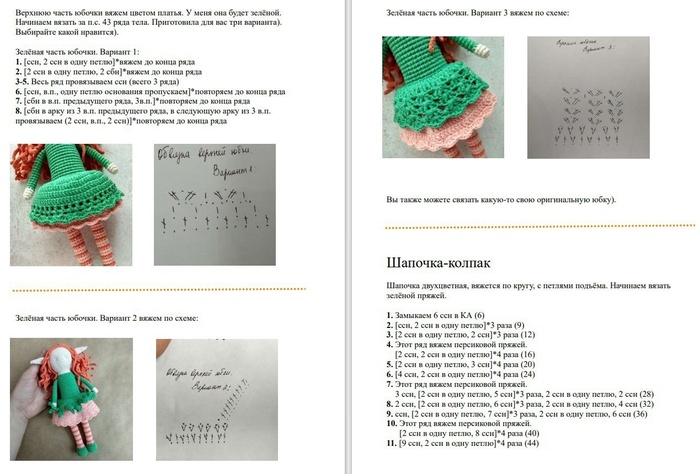 Верхнюю часть юбочки вяжем цветом платья. У меня она будет зелёной.
Начинаем вязать за п.с. 43 ряда тела. Приготовила для вас три варианта).
Выбирайте какой нравится).
Зелёная часть юбочки. Вариант 1:
1. [ссн, 2 ссн в одну петлю]*вяжем до конца ряда
2. [2 ссн в одну петлю, 2 сбн]*вяжем до конца ряда
3-5. Весь ряд провязываем ссн (всего 3 ряда)
6. [ссн, в.п., одну петлю основания пропускаем]*повторяем до конца ряда
7. [сбн в в.п. предыдущего ряда, 3в.п.]*повторяем до конца ряда
8. [сбн в арку из 3 в.п. предыдущего ряда, в следующую арку из 3 в.п.
провязываем (2 ссн, в.п., 2 ссн)]*повторяем до конца ряда
Обвязка верхней юбки
Вариант 1
Зелёная часть юбочки. Вариант 2 вяжем по схеме:
Обвязка верхней юбки.
Вариант 2:
Зелёная часть юбочки. Вариант 3 вяжем по схеме:
Вариант 3:
Вы также можете связать какую-то свою оригинальную юбку).
Шапочка-колпак
Шапочка двухцветная, вяжется по кругу, с петлями подъёма. Начинаем вязать
зелёной пряжей.
1. Замыкаем 6 ссн в КА (6)
2. [ссн, 2 ссн в одну петлю]*3 раза (9)
3. [2 ссн в одну петлю, 2 ссн]*3 раза (12)
4. Этот ряд вяжем персиковой пряжей.
[2 ссн, 2 ссн в одну петлю]*4 раза (16)
5. [2 ссн в одну петлю, 3 ссн]*4 раза (20)
6. [4 ссн, 2 ссн в одну петлю]*4 раза (24)
7. Этот ряд вяжем персиковой пряжей.
3 ссн, [2 ссн в одну петлю, 5 ссн]*3 раза, 2 ссн в одну петлю, 2 ссн (28)
8. 2 ссн, [2 ссн в одну петлю, 6 ссн]*3 раза, 2 ссн в одну петлю, 4 ссн (32)
9. ссн, [2 ссн в одну петлю, 7 ссн]*3 раза, 2 ссн в одну петлю, 6 ссн (36)
10. Этот ряд вяжем персиковой пряжей.
[2 ссн в одну петлю, 8 ссн]*4 раза (40)
11. [9 ссн, 2 ссн в одну петлю]*4 раза (44)